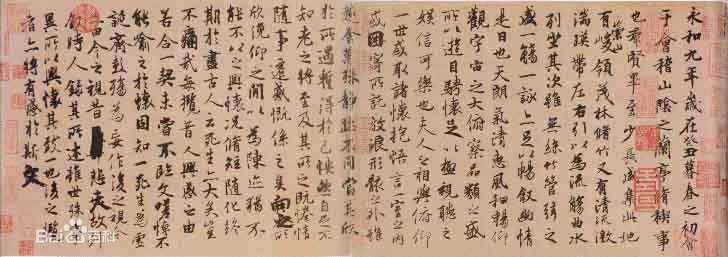 永和九年歲在癸丑暮春之初會
于會稽山陰之蘭亭脩稧事
也羣賢畢至少長咸集此地
有崇山峻領茂林脩竹又有清流激
湍暎帶左右引以為流觴曲水
列坐其次雖無絲竹管弦之
盛一觴一詠亦足以暢敘幽情
是日也天朗氣清惠風和暢仰
觀宇宙之大俯察品類之盛
所以遊目騁懷足以極視聽之
娛信可樂也夫人之相與俯仰
一世或取諸懷抱悟言一室之內
或因寄所託放浪形骸之外雖
趣舍萬殊靜躁不同當其欣
於所遇蹔得於己怏然自足不
知老之將至及其所之既惓情
隨事遷感慨係之矣向之所
欣俛仰之閒以為陳迹猶不
能不以之興懷況脩短隨化終
期於盡古人云死生亦大矣豈
不痛哉每攬昔人興感之由
若合一契未嘗不臨文嗟悼不
能喻之於懷固知一死生為虛
誕齊彭殤為妄作後之視今
亦由今之視昔悲夫故列
敘時人錄其所述雖世殊事
異所以興懷其致一也後之攬
者亦將有感於斯文
Bai百科